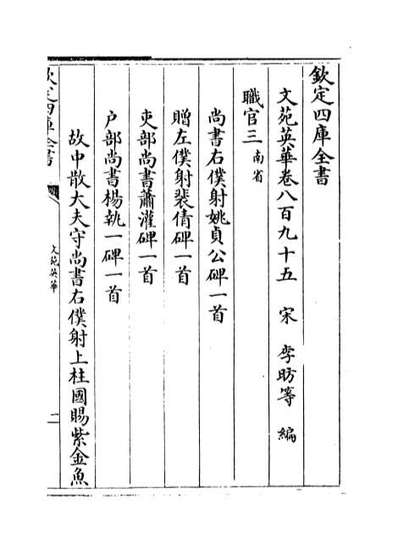 欽定四庫全書
文苑英華卷八百九十五　宋　李昉等　編
職官三 南省
尚書右僕射姚貞公碑一首
贈左僕射裴倩碑一首
吏部尚書蕭灌碑一首
户部尚書楊執一碑一首
故中散大夫守尚書右僕射上柱國賜紫金魚
欽定四庫全書
文苑英華
二